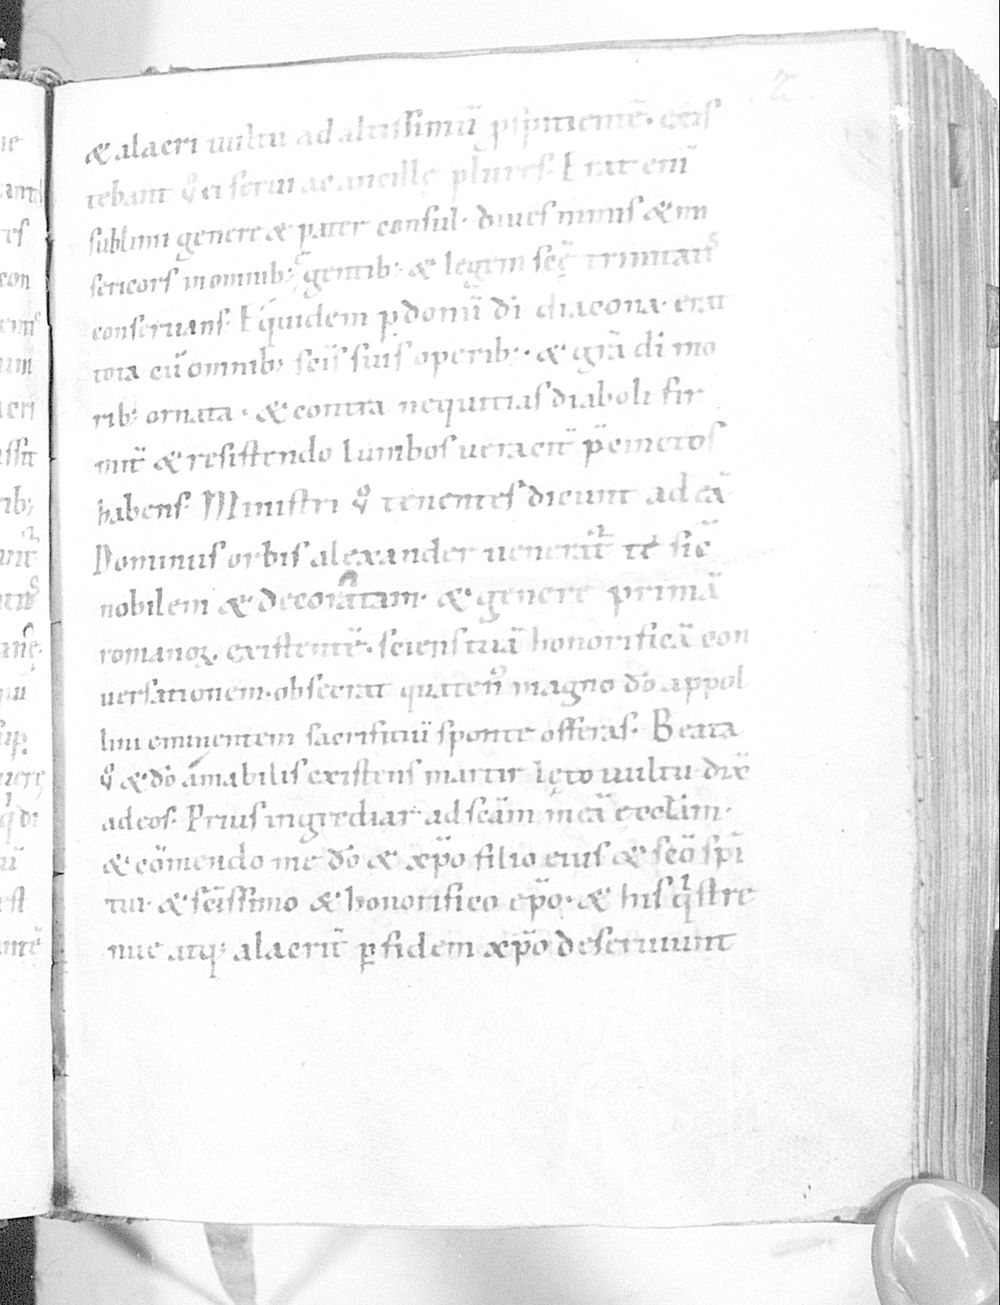 2
& alacri uultu ad altissimū ꝓspicientē. exis
tebant ꝙ̊ ei serui ac ancillę plures. Erat enī
sublimi genere & pater consul. diues nimis & mi
sericors in omnib; gentib; & legem scę̄ trinitatis
conseruans. Equidem ꝓ domū dī diacona. erat
tota cū omnib; scīs suis operib;. & grā dī mo
rib; ornata. & contra nequitias diaboli fir
mit̄ & resistendo lumbos ueracit̄ p̄cinctos
habens. Ministri ꝙ̊ tenentes dicunt ad eā
Dominus orbis alexander te sic̄
nobilem & decoratam. & genere primā
romanoꝝ. existentē. sciens tuā honorificā con
uersationem. obsecrat quaten᷒ magno dō appol
lini eminentem sacrificiū sponte offeras. Beata
ꝙ̊ & dō amabilis existens martir lęto uultu dix̄
ad eos. Prius ingrediar ad scām meā ęcclām.
& cōmendo me dō & xp̄o filio eius & scō spī
tui. & scīssimo & honorifico ep̄o. & his qͥ stre
nue atq; alacrit̄ ꝑ fidem xp̄o deseruiunt